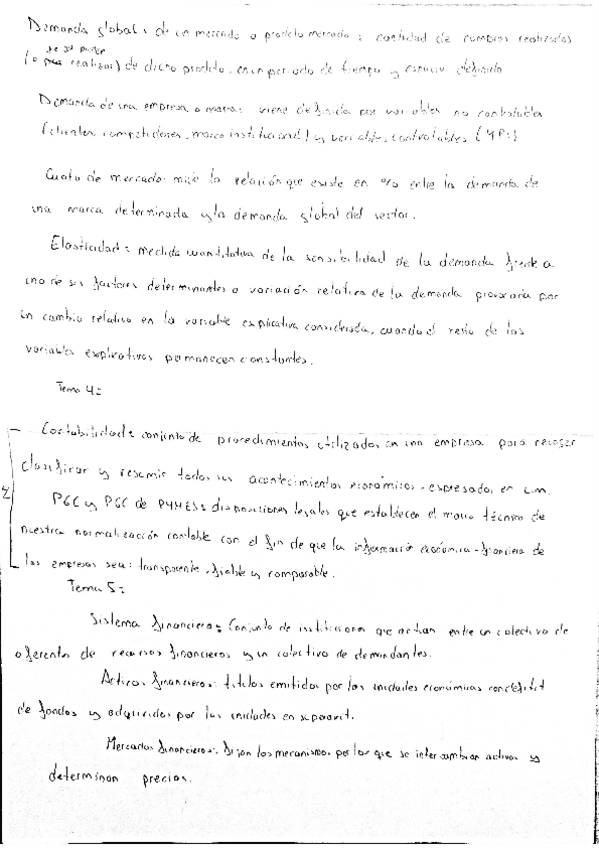 Demanda global: de un mercado o producto mercado: cantidad de compras realizadas
se puedan
(o realizar) de dicho producto, en un periodo de tiempo y espacio definido
Demanda de una empresa o marca: viene definida por variables no controlables
(clientes, competidores, marco institucional) y variables controlables (4P's)
Cuota de mercado: mide la relación que existe en % entre la demanda de
una marca determinada y la demanda global del sector.
Elasticidad: medida cuantitativa de la sensibilidad de la demanda frente a
uno de sus factores determinantes o variación relativa de la demanda provocaría por
un cambio relativo en la variable explicativa considerada, cuando el resto de las
variables explicativas permanecen constantes.
Tema 4:
Contabilidad: conjunto de procedimientos utilizados en una empresa para recoger
clasificar y resumir todos sus acontecimientos económicos - expresados en u.m.
PGC y PGC de PYMES: disposiciones legales que establecen el marco técnico de
nuestra normalización contable con el fin de que la información económica-financiera de
las empresas sea: transparente, fiable y comparable.
Tema 5:
Sistema financiero: Conjunto de instituciones que actúan entre un colectivo de
oferentes de recursos financieros y un colectivo de demandantes.
Activos financieros: títulos emitidos por las unidades económicas con déficit
de fondos y adquiridos por las unidades en superávit.
Mercados financieros: son los mecanismos por los que se intercambian activos y
determinan precios.